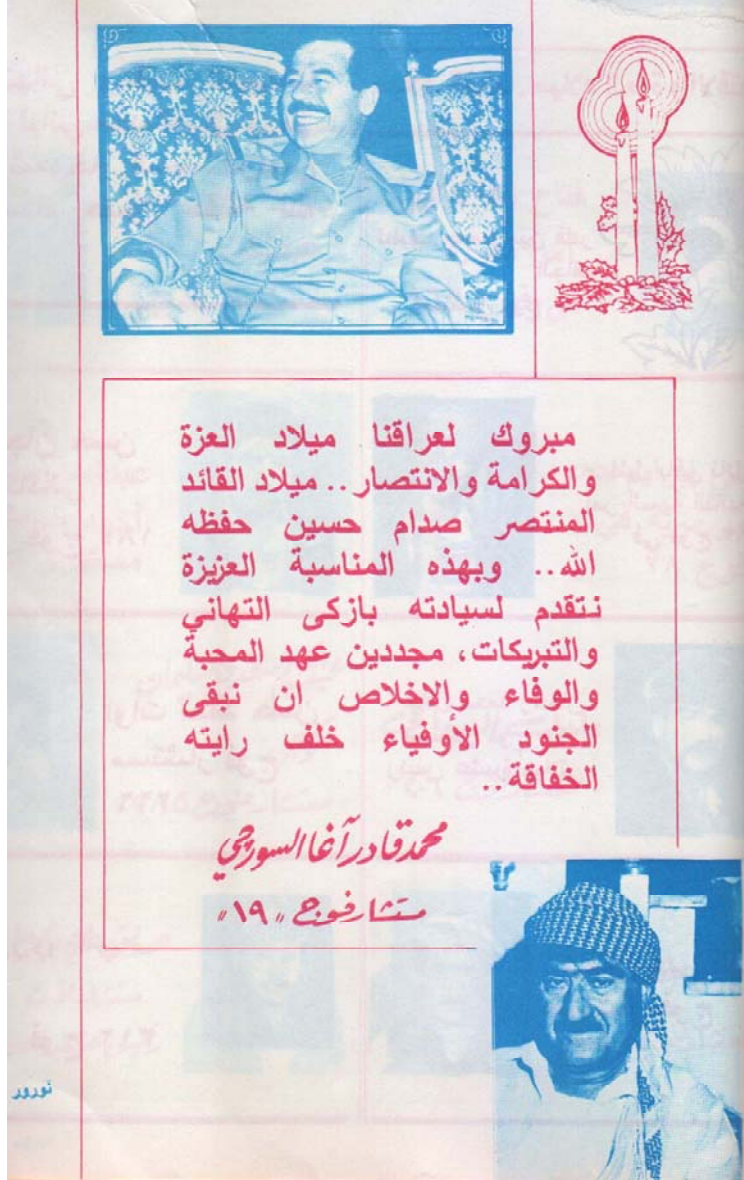 مبروك لعراقنا ميلاد العزة
والكرامة والانتصار.. ميلاد القائد
المنتصر صدام حسين حفظه
الله.. وبهذه المناسبة العزيزة
نتقدم لسيادته بازكى التهاني
والتبريكات، مجددين عهد المحبة
والوفاء والاخلاص ان نبقى
الجنود الأوفياء خلف رايته
الخفاقة..
محمد قادر آغا السورچي
مستشار فوج «١٩»